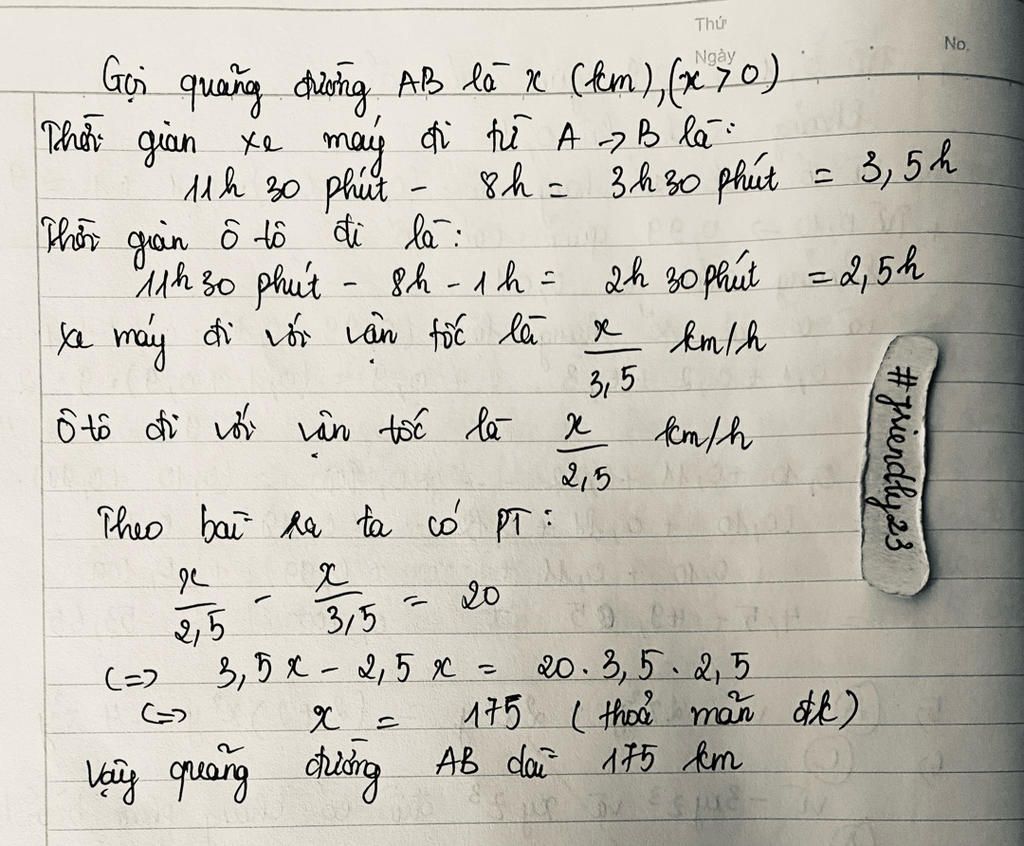 Thứ
Ngày
No.
Gọi quãng đường AB là x (km), (x > 0)
Thời gian xe máy đi từ A -> B là:
11h 30 phút - 8h = 3h 30 phút = 3,5h
Thời gian ô tô đi là:
11h 30 phút - 8h - 1h = 2h 30 phút = 2,5h
xe máy đi với vận tốc là x/3,5 km/h
Ô tô đi với vận tốc là x/2,5 km/h
Theo bài ra ta có PT:
x/2,5 - x/3,5 = 20
<=> 3,5x - 2,5x = 20 . 3,5 . 2,5
<=> x = 175 (thoả mãn đk)
Vậy quãng đường AB dài 175 km
#friendly23